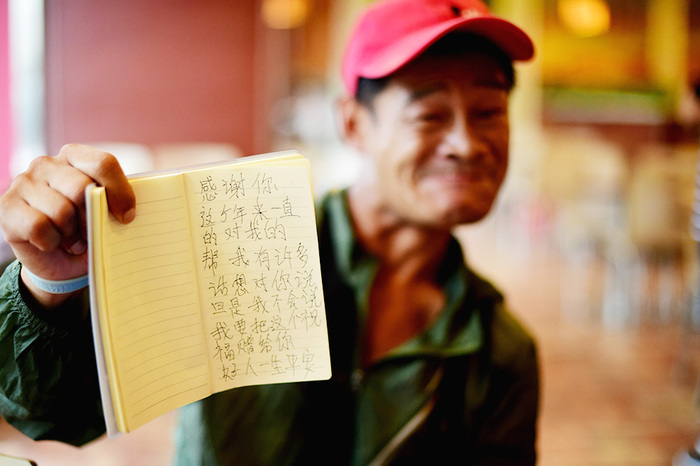 感谢你
这个年来一直
的对我的
帮 我有许多
话想对你说
但是我不会说
我要把这个祝
福赠给你
好人一生平安